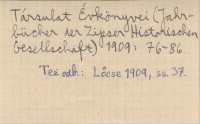 Társulat Évkönyvei (Jahr-
bücher der Zipser Historischen
Gesellschaft) 1909: 76-86.
Tez odb.: Lőcse 1909, ss. 37.